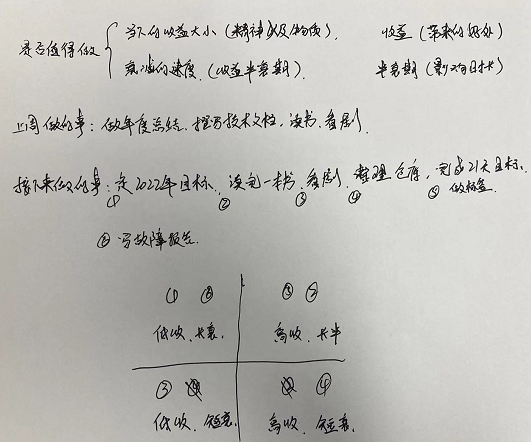 当下的收益大小(精神以及物质). 收益(带来的好处)
是否值得做
衰减的速度.(收益半衰期). 半衰期(影响时长)
上周做的事:做年度总结、撰写技术文档、读书、看剧.
接下来做的事:定2022年目标、读完一本书、看剧、整理仓库,完成21天目标.
① ② ③ ④ ⑤ 做标签
⑥ 写故障报告.
① ⑥ ⑤ ②
低收、长衰. 高收、长半
③ ④
低收、短衰. 高收、短衰.